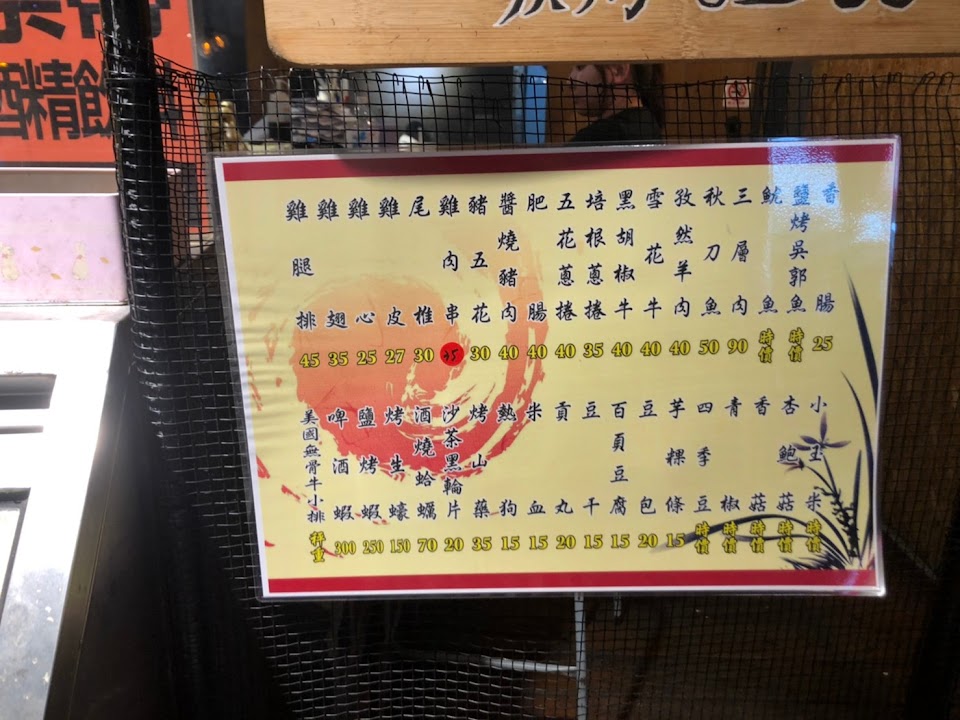 酒精飲
香腸 25
鹽烤吳郭魚 時價
魷魚 時價
三層肉 90
秋刀魚 50
孜然羊肉 40
雪花牛 40
黑胡椒牛 40
培根蔥捲 35
五花蔥捲 40
肥腸 40
醬燒豬肉 40
豬五花 30
雞肉串
尾椎 30
雞皮 27
雞心 25
雞翅 35
雞腿排 45
小玉米 時價
杏鮑菇 時價
香菇 時價
青椒 時價
四季豆 時價
芋粿條 15
豆包 20
百頁豆腐 15
豆干 15
貢丸 20
米血 15
熱狗 15
烤山藥 35
沙茶黑輪片 20
酒燒蛤蠣 70
烤生蠔 150
鹽烤蝦 250
啤酒蝦 300
美國無骨牛小排 秤重